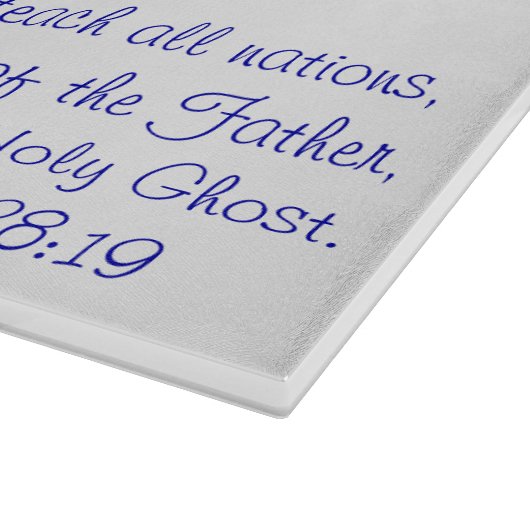 teach all nations,
of the Father,
Holy Ghost.
28:19